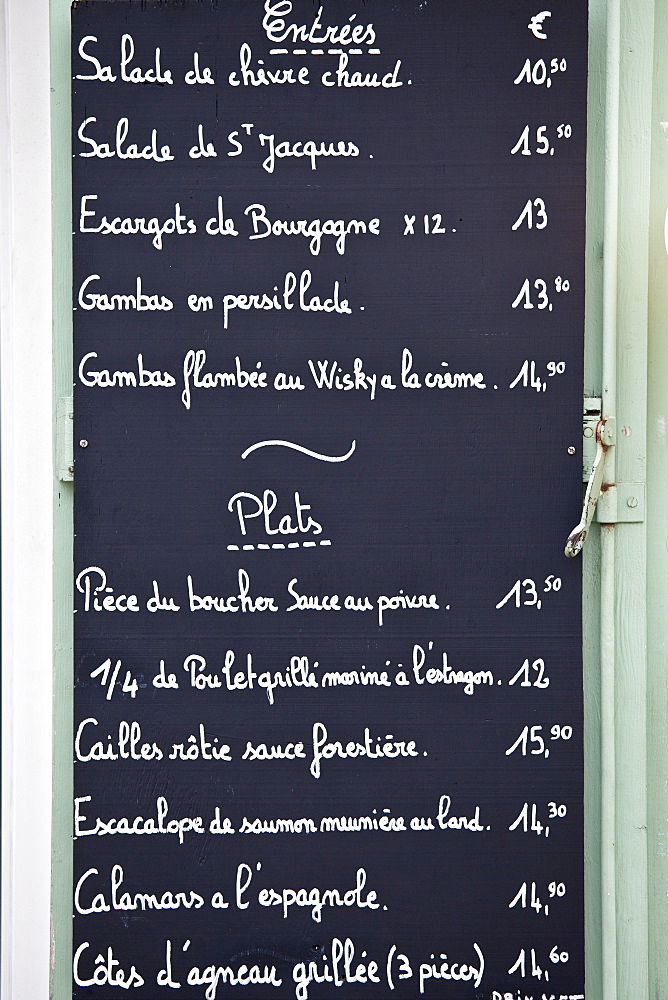 Entrées €
Salade de chèvre chaud. 10,50
Salade de ST Jacques. 15,50
Escargots de Bourgogne x 12. 13
Gambas en persillade. 13,80
Gambas flambée au Wisky a la crème. 14,90
Plats
Pièce du boucher Sauce au poivre. 13,50
1/4 de Poulet grillé mariné à l'éstragon. 12
Cailles rôtie sauce forestière. 15,90
Escacalope de saumon meunière au lard. 14,30
Calamars a l'espagnole. 14,90
Côtes d'agneau grillée (3 pièces) 14,60